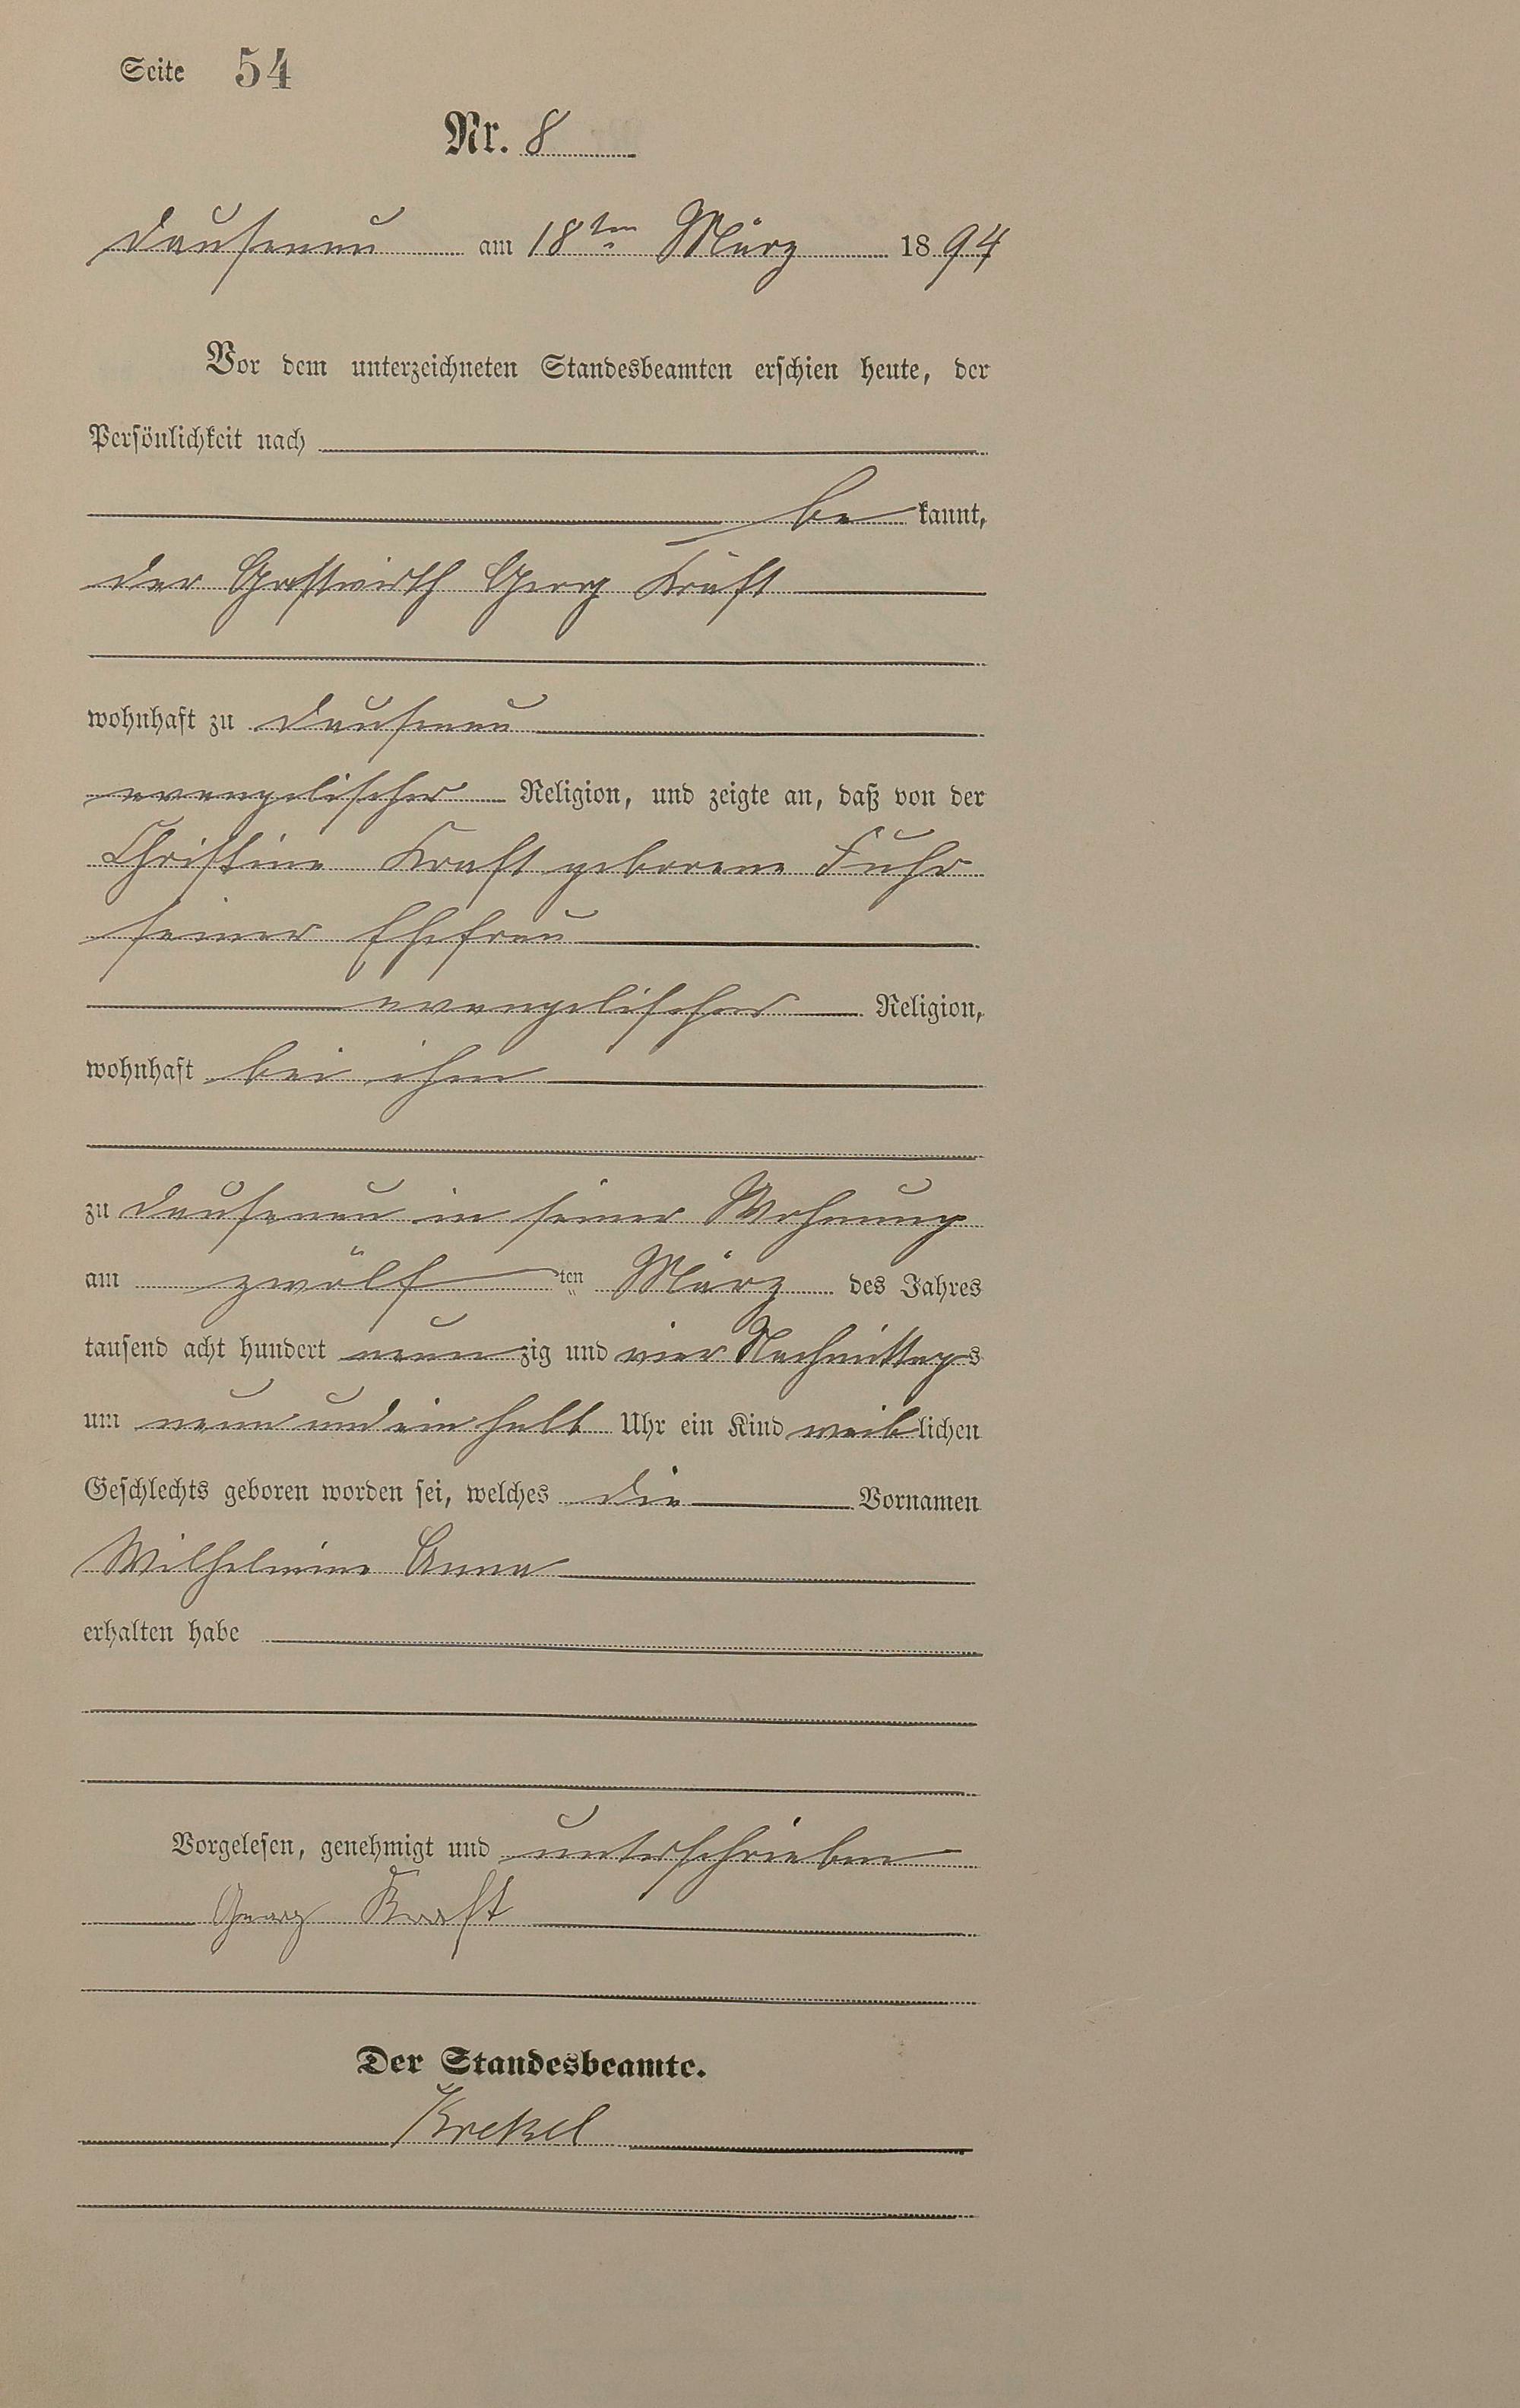 Seite 54
Nr. 8
Dausenau am 18ten März 1894
Vor dem unterzeichneten Standesbeamten erschien heute, der
Persönlichkeit nach
be kannt,
der Gastwirth Georg Kraft
wohnhaft zu Dausenau
evangelischer Religion, und zeigte an, daß von der
Christine Kraft geborene Fuhr
seiner Ehefrau
evangelischer Religion,
wohnhaft bei ihm
zu Dausenau in seiner Wohnung
am zwölf ten März des Jahres
tausend acht hundert neun zig und vier Nachmittags
um neun und ein halb Uhr ein Kind weib lichen
Geschlechts geboren worden sei, welches die Vornamen
Wilhelmine Anna
erhalten habe
Vorgelesen, genehmigt und unterschrieben
Georg Kraft
Der Standesbeamte.
Krekel